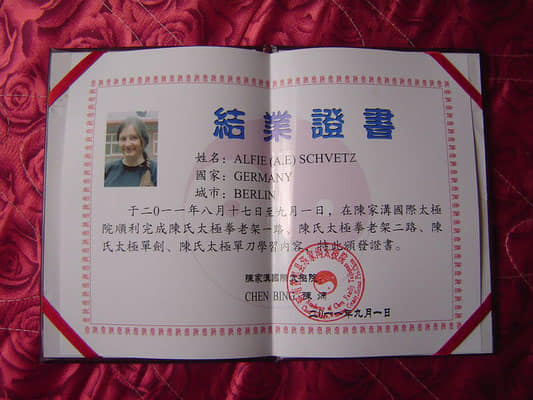 結業證書
姓名：ALFIE (A.E) SCHVETZ
國家：GERMANY
城市：BERLIN
于二〇一一年八月十七日至九月一日，在陳家溝國際太極
院順利完成陳氏太極拳老架一路、陳氏太極拳老架二路、陳
氏太極單劍、陳氏太極單刀學習内容，特此頒發證書。
陳家溝國際太極院
CHEN BING 陳炳
二〇一一年九月一日